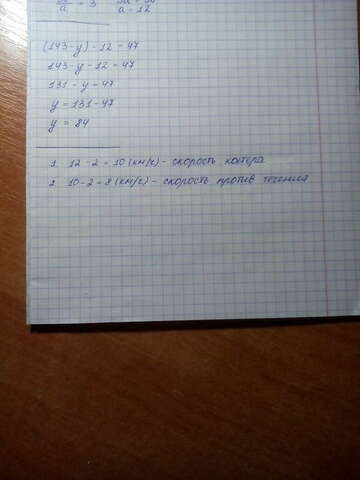 a = 3
a = 12
(143 - y) - 12 = 47
143 - y - 12 = 47
131 - y = 47
y = 131 - 47
y = 84
1. 12 - 2 = 10 (км/ч) - скорость катера
2. 10 - 2 = 8 (км/ч) - скорость против течения